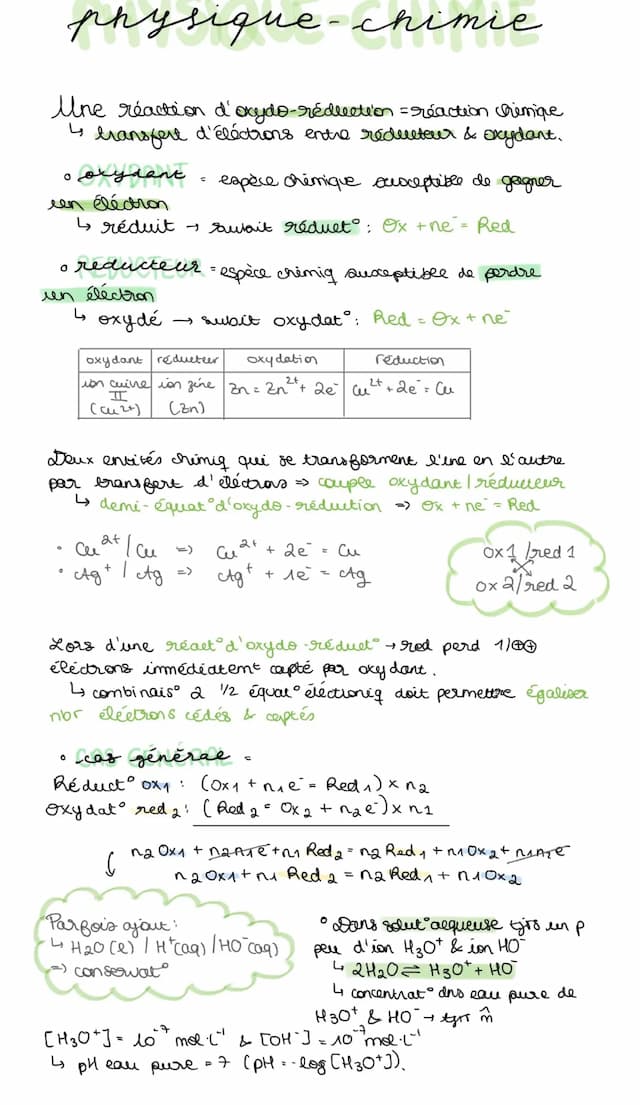 physique-chimie
Une réaction d'oxydo-réduction = réaction chimique
↳ transfert d'éléctrons entre réducteur & oxydant.
° oxydant = espèce chimique susceptible de gagner
un éléctron
↳ réduit → subit réduct° : Ox + ne⁻ = Red
° reducteur = espèce chimiq susceptible de perdre
un éléctron
↳ oxydé → subit oxydat° : Red = Ox + ne⁻
oxydant | réducteur | oxydation | réduction
ion cuivre II (Cu²⁺) | ion zinc (Zn) | Zn = Zn²⁺ + 2e⁻ | Cu²⁺ + 2e⁻ = Cu
Deux entités chimiq qui se transforment l'une en l'autre
par transfert d'éléctrons => couple oxydant / réducteur
↳ demi-équat° d'oxydo-réduction => Ox + ne⁻ = Red
• Cu²⁺ / Cu => Cu²⁺ + 2e⁻ = Cu
• Ag⁺ / Ag => Ag⁺ + 1e⁻ = Ag
ox 1 / red 1
ox 2 / red 2
Lors d'une réact° d'oxydo-réduct° → red perd 1/⊕⊕
éléctrons immédiatemt capté par oxydant.
↳ combinais° 2 1/2 équat° éléctroniq doit permettre égaliser
nbr éléctrons cédés & captés
° cas général =
Réduct° ox1 : (Ox1 + n1e⁻ = Red1) × n2
Oxydat° red2 : (Red2 = Ox2 + n2e⁻) × n1
n2 Ox1 + n2n1e⁻ + n1 Red2 = n2 Red1 + n1 Ox2 + n1n2e⁻
n2 Ox1 + n1 Red2 = n2 Red1 + n1 Ox2
Parfois ajout :
↳ H2O (l) / H⁺(aq) / HO⁻(aq)
=> conservat°
° Dans solut° aqueuse tjrs un p
peu d'ion H3O⁺ & ion HO⁻
↳ 2H2O ⇌ H3O⁺ + HO⁻
↳ concentrat° dns eau pure de
H3O⁺ & HO⁻ → tjrs m̂
[H3O⁺] = 10⁻⁷ mol·L⁻¹ & [OH⁻] = 10⁻⁷ mol·L⁻¹
↳ pH eau pure = 7 (pH = -log[H3O⁺]).